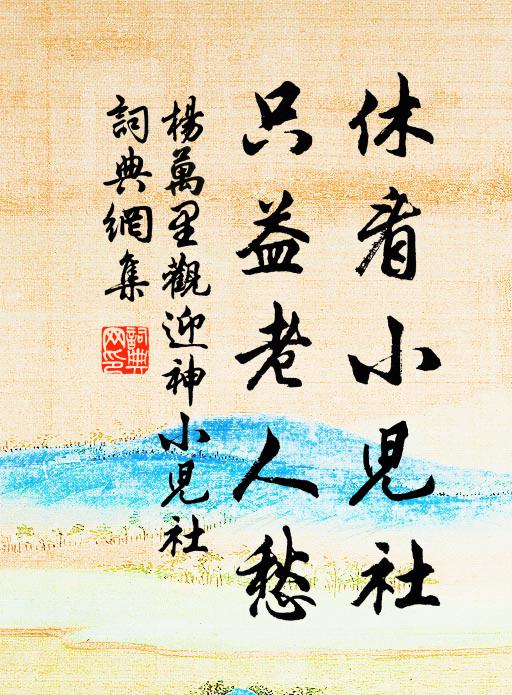 休看小児社
只益老人愁
楊萬里觀迎神小児社
詞典網集
詞典
网印